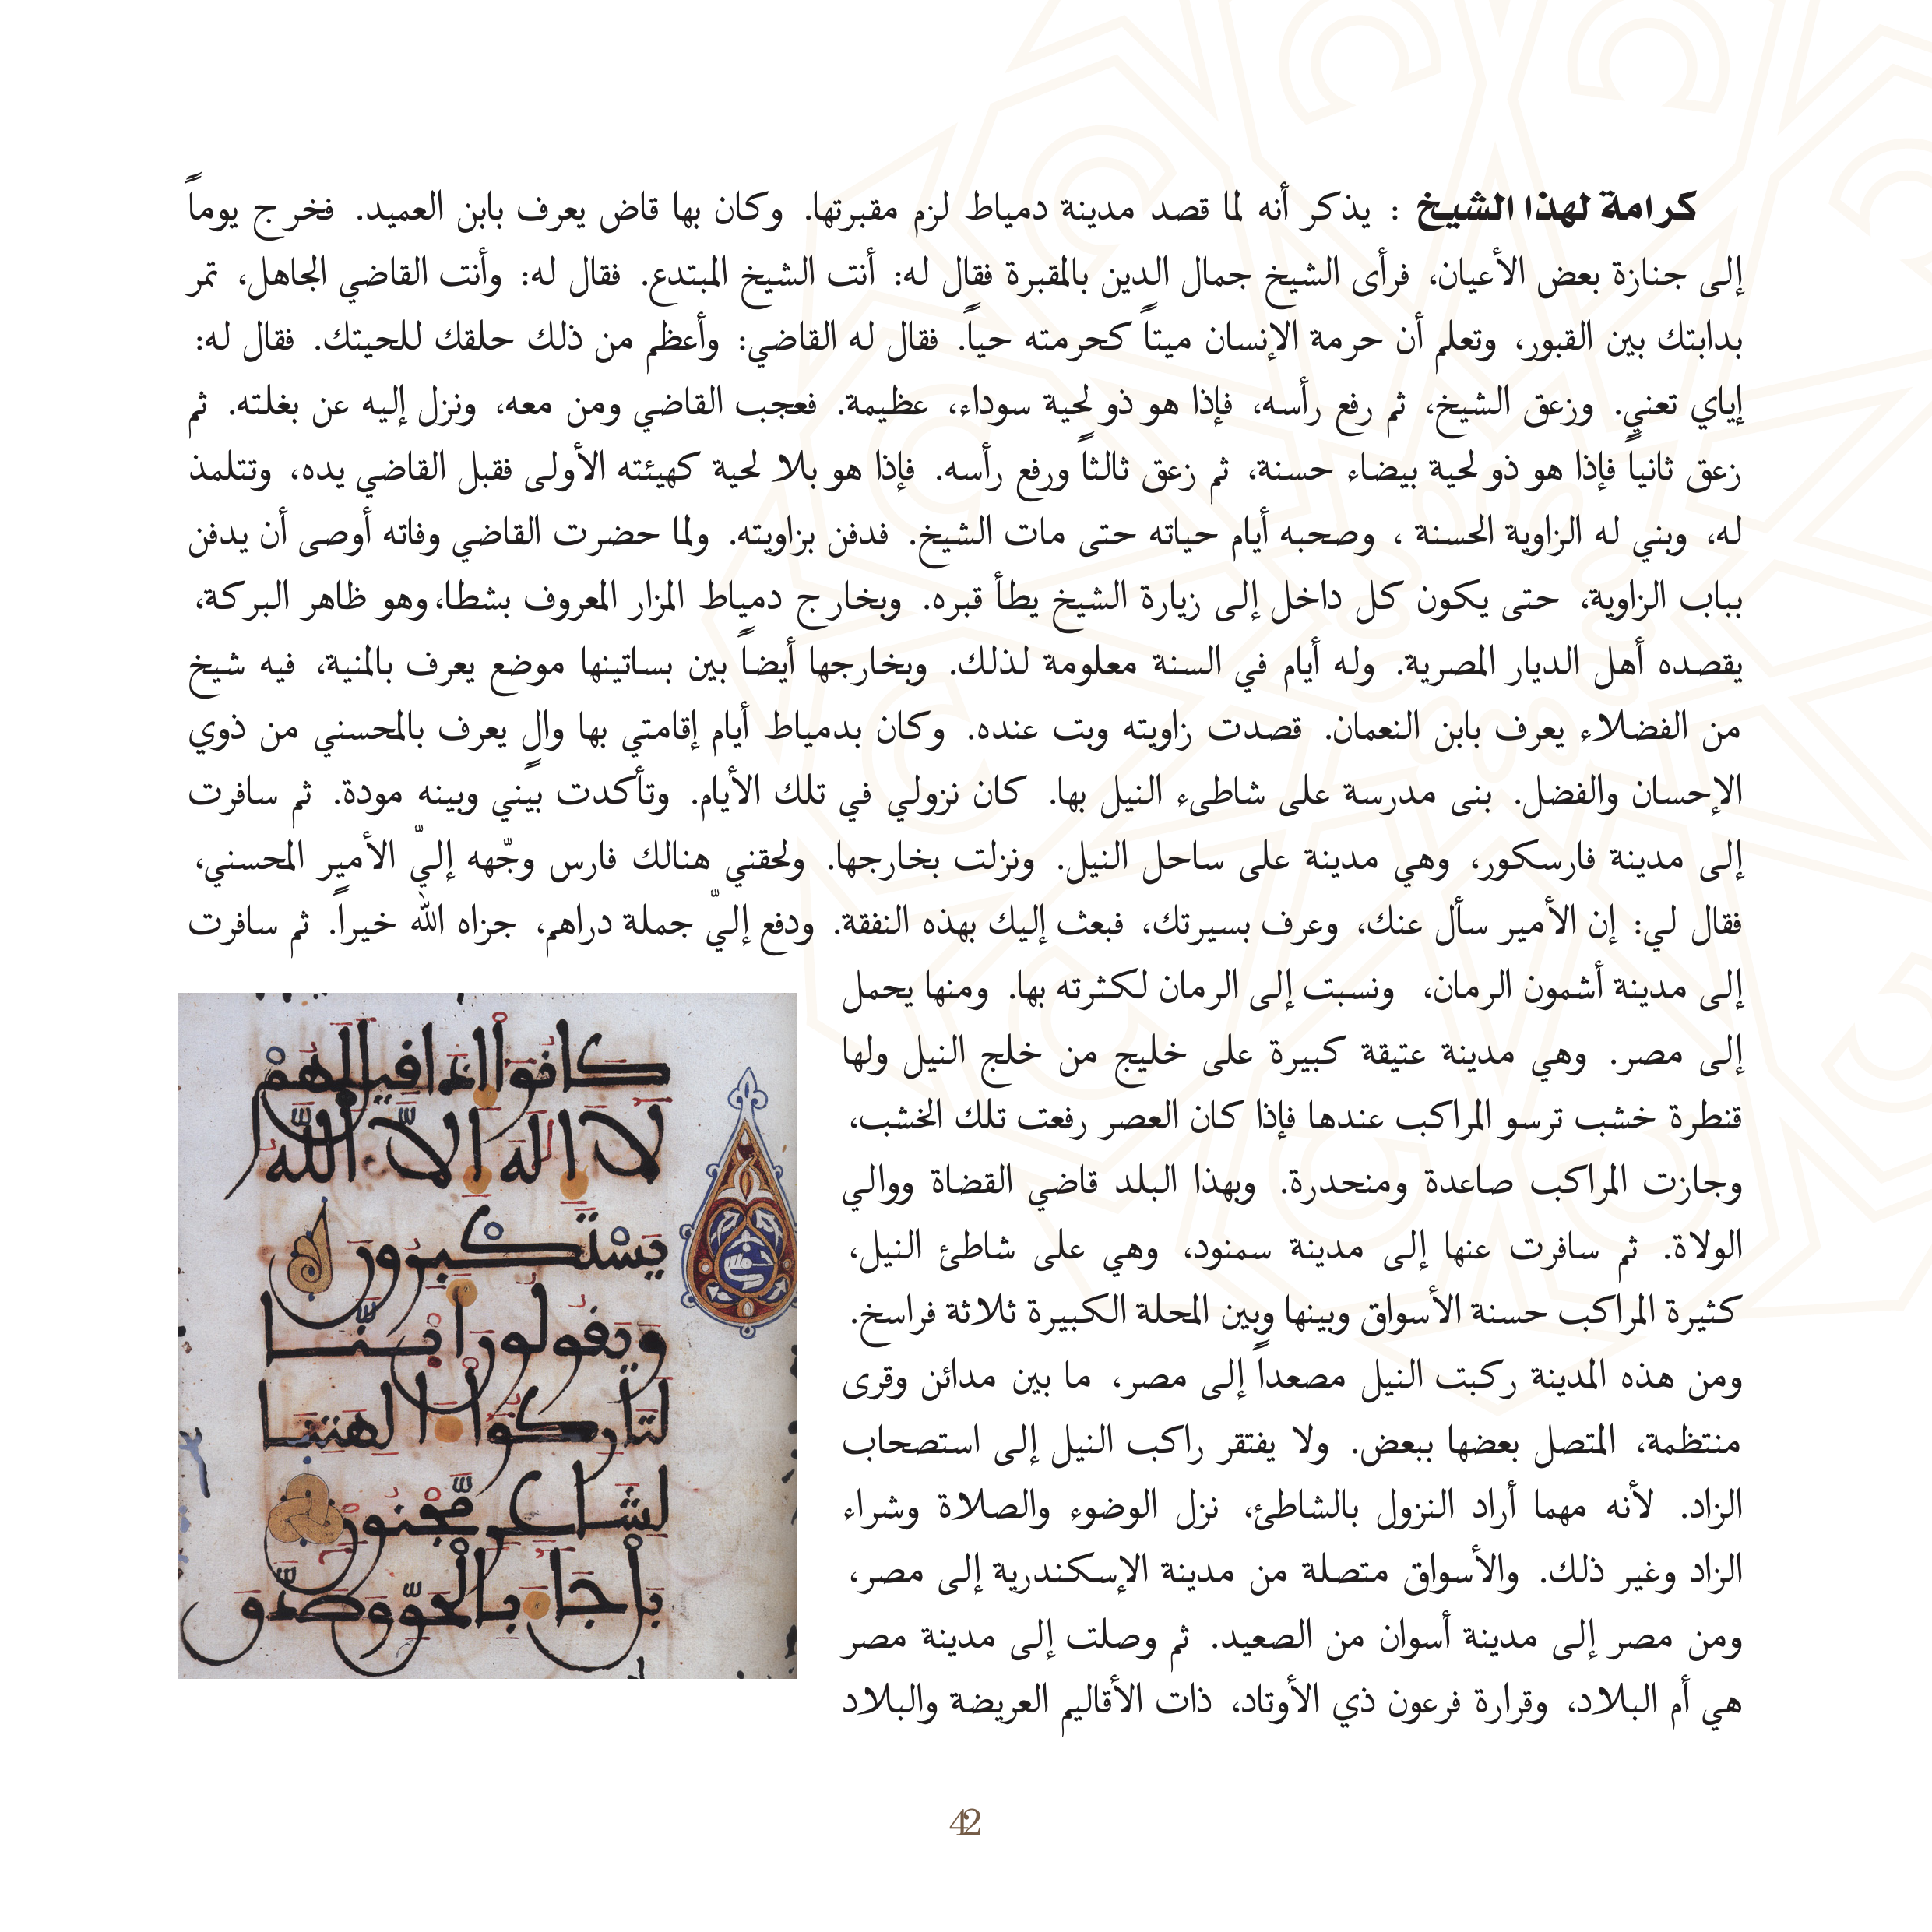 كرامة لهذا الشيخ : يذكر أنه لما قصد مدينة دمياط لزم مقبرتها. وكان بها قاض يعرف بابن العميد. فخرج يوماً
إلى جنازة بعض الأعيان، فرأى الشيخ جمال الدين بالمقبرة فقال له: أنت الشيخ المبتدع. فقال له: وأنت القاضي الجاهل، تمر
بدابتك بين القبور، وتعلم أن حرمة الإنسان ميتاً كحرمته حياً. فقال له القاضي: وأعظم من ذلك حلقك للحيتك. فقال له:
إياي تعني. وزعق الشيخ، ثم رفع رأسه، فإذا هو ذو لحية سوداء، عظيمة. فعجب القاضي ومن معه، ونزل إليه عن بغلته. ثم
زعق ثانياً فإذا هو ذو لحية بيضاء حسنة، ثم زعق ثالثاً ورفع رأسه. فإذا هو بلا لحية كهيئته الأولى فقبل القاضي يده، وتتلمذ
له، وبني له الزاوية الحسنة ، وصحبه أيام حياته حتى مات الشيخ. فدفن بزاويته. ولما حضرت القاضي وفاته أوصى أن يدفن
بباب الزاوية، حتى يكون كل داخل إلى زيارة الشيخ يطأ قبره. وبخارج دمياط المزار المعروف بشطا، وهو ظاهر البركة،
يقصده أهل الديار المصرية. وله أيام في السنة معلومة لذلك. وبخارجها أيضاً بين بساتينها موضع يعرف بالمنية، فيه شيخ
من الفضلاء يعرف بابن النعمان. قصدت زاويته وبت عنده. وكان بدمياط أيام إقامتي بها والٍ يعرف بالمحسني من ذوي
الإحسان والفضل. بنى مدرسة على شاطىء النيل بها. كان نزولي في تلك الأيام. وتأكدت بيني وبينه مودة. ثم سافرت
إلى مدينة فارسكور، وهي مدينة على ساحل النيل. ونزلت بخارجها. ولحقني هنالك فارس وجّهه إليّ الأمير المحسني،
فقال لي: إن الأمير سأل عنك، وعرف بسيرتك، فبعث إليك بهذه النفقة. ودفع إليّ جملة دراهم، جزاه الله خيراً. ثم سافرت
إلى مدينة أشمون الرمان، ونسبت إلى الرمان لكثرته بها. ومنها يحمل
إلى مصر. وهي مدينة عتيقة كبيرة على خليج من خلج النيل ولها
قنطرة خشب ترسو المراكب عندها فإذا كان العصر رفعت تلك الخشب،
وجازت المراكب صاعدة ومنحدرة. وبهذا البلد قاضي القضاة ووالي
الولاة. ثم سافرت عنها إلى مدينة سمنود، وهي على شاطئ النيل،
كثيرة المراكب حسنة الأسواق وبينها وبين المحلة الكبيرة ثلاثة فراسخ.
ومن هذه المدينة ركبت النيل مصعداً إلى مصر، ما بين مدائن وقرى
منتظمة، المتصل بعضها ببعض. ولا يفتقر راكب النيل إلى استصحاب
الزاد. لأنه مهما أراد النزول بالشاطئ، نزل الوضوء والصلاة وشراء
الزاد وغير ذلك. والأسواق متصلة من مدينة الإسكندرية إلى مصر،
ومن مصر إلى مدينة أسوان من الصعيد. ثم وصلت إلى مدينة مصر
هي أم البلاد، وقرارة فرعون ذي الأوتاد، ذات الأقاليم العريضة والبلاد
كانوا إذا قيل لهم
لا إله إلا الله
يستكبرون
ويقولون أينا
لتاركوا آلهتنا
لشاعر مجنون
بل جاء بالحق وصدق
42